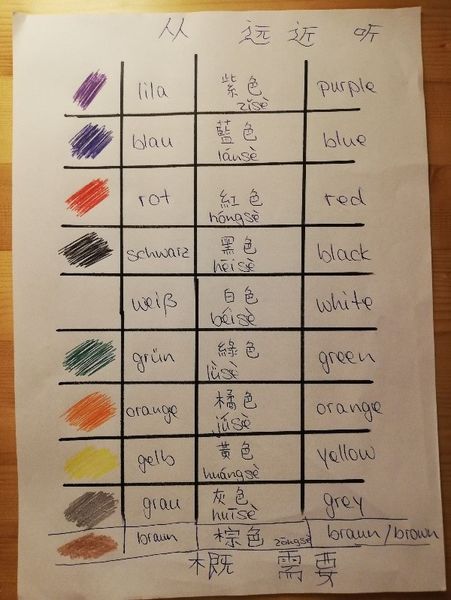 从 远 近 听
lila 紫色 purple
zǐsè
blau 藍色 blue
lánsè
rot 紅色 red
hóngsè
schwarz 黑色 black
hēisè
weiß 白色 white
béisè
grün 綠色 green
lǜsè
orange 橘色 orange
júsè
gelb 黃色 yellow
huángsè
grau 灰色 grey
huīsè
braun 棕色 zōngsè braun/brown
概 需要